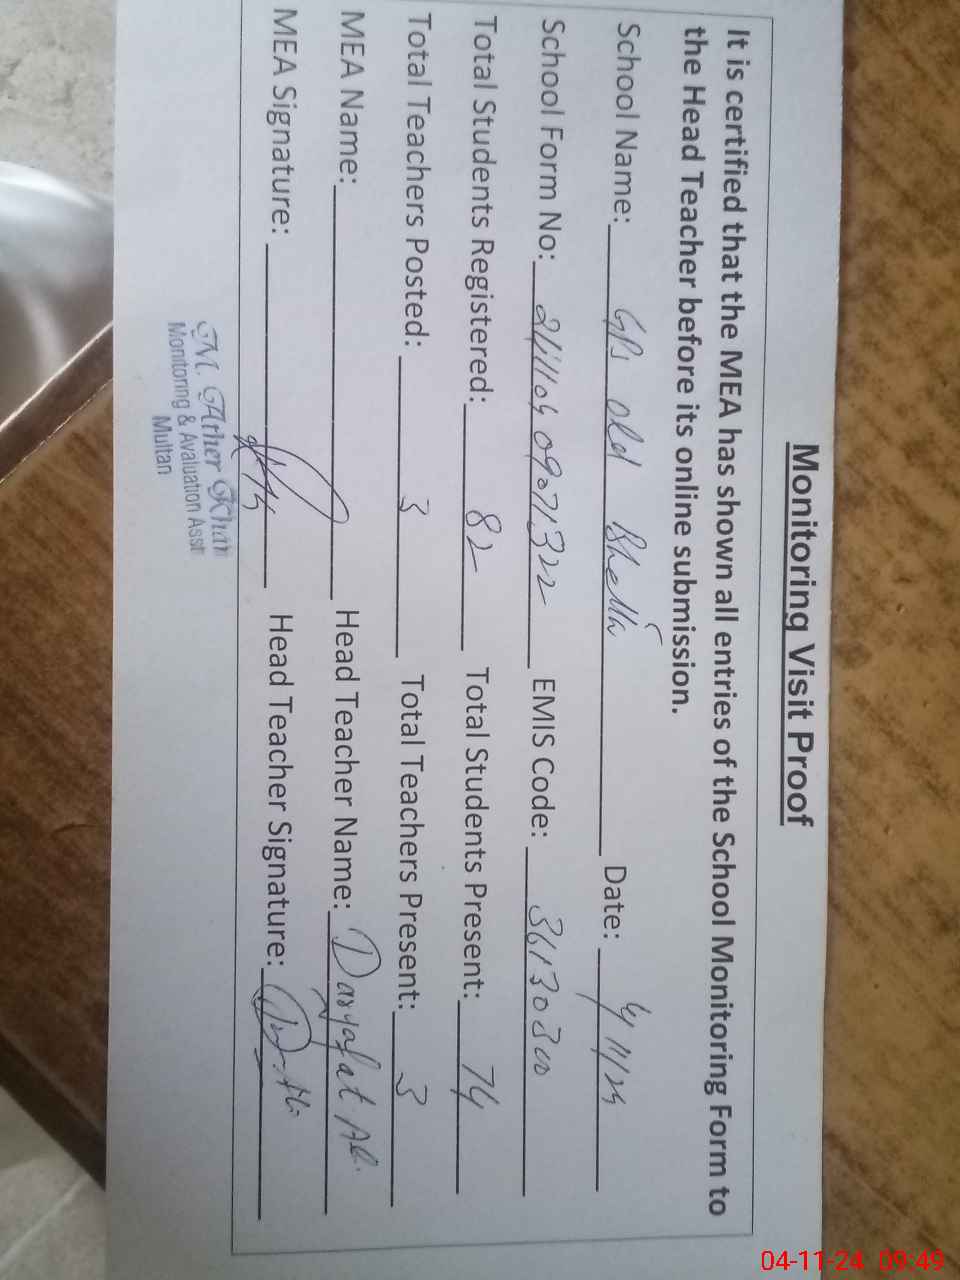 Monitoring Visit Proof
It is certified that the MEA has shown all entries of the School Monitoring Form to
the Head Teacher before its online submission.
School Name: GPS old Date: 4/11/24
School Form No: EMIS Code: 36130300
Total Students Registered: 82 Total Students Present: 74
Total Teachers Posted: 3 Total Teachers Present: 3
MEA Name: Head Teacher Name: Daryafat Ali
MEA Signature: Head Teacher Signature:
M. Ather Khan
Monitoring & Avaluation Asstt
Multan
04-11-24 09:49